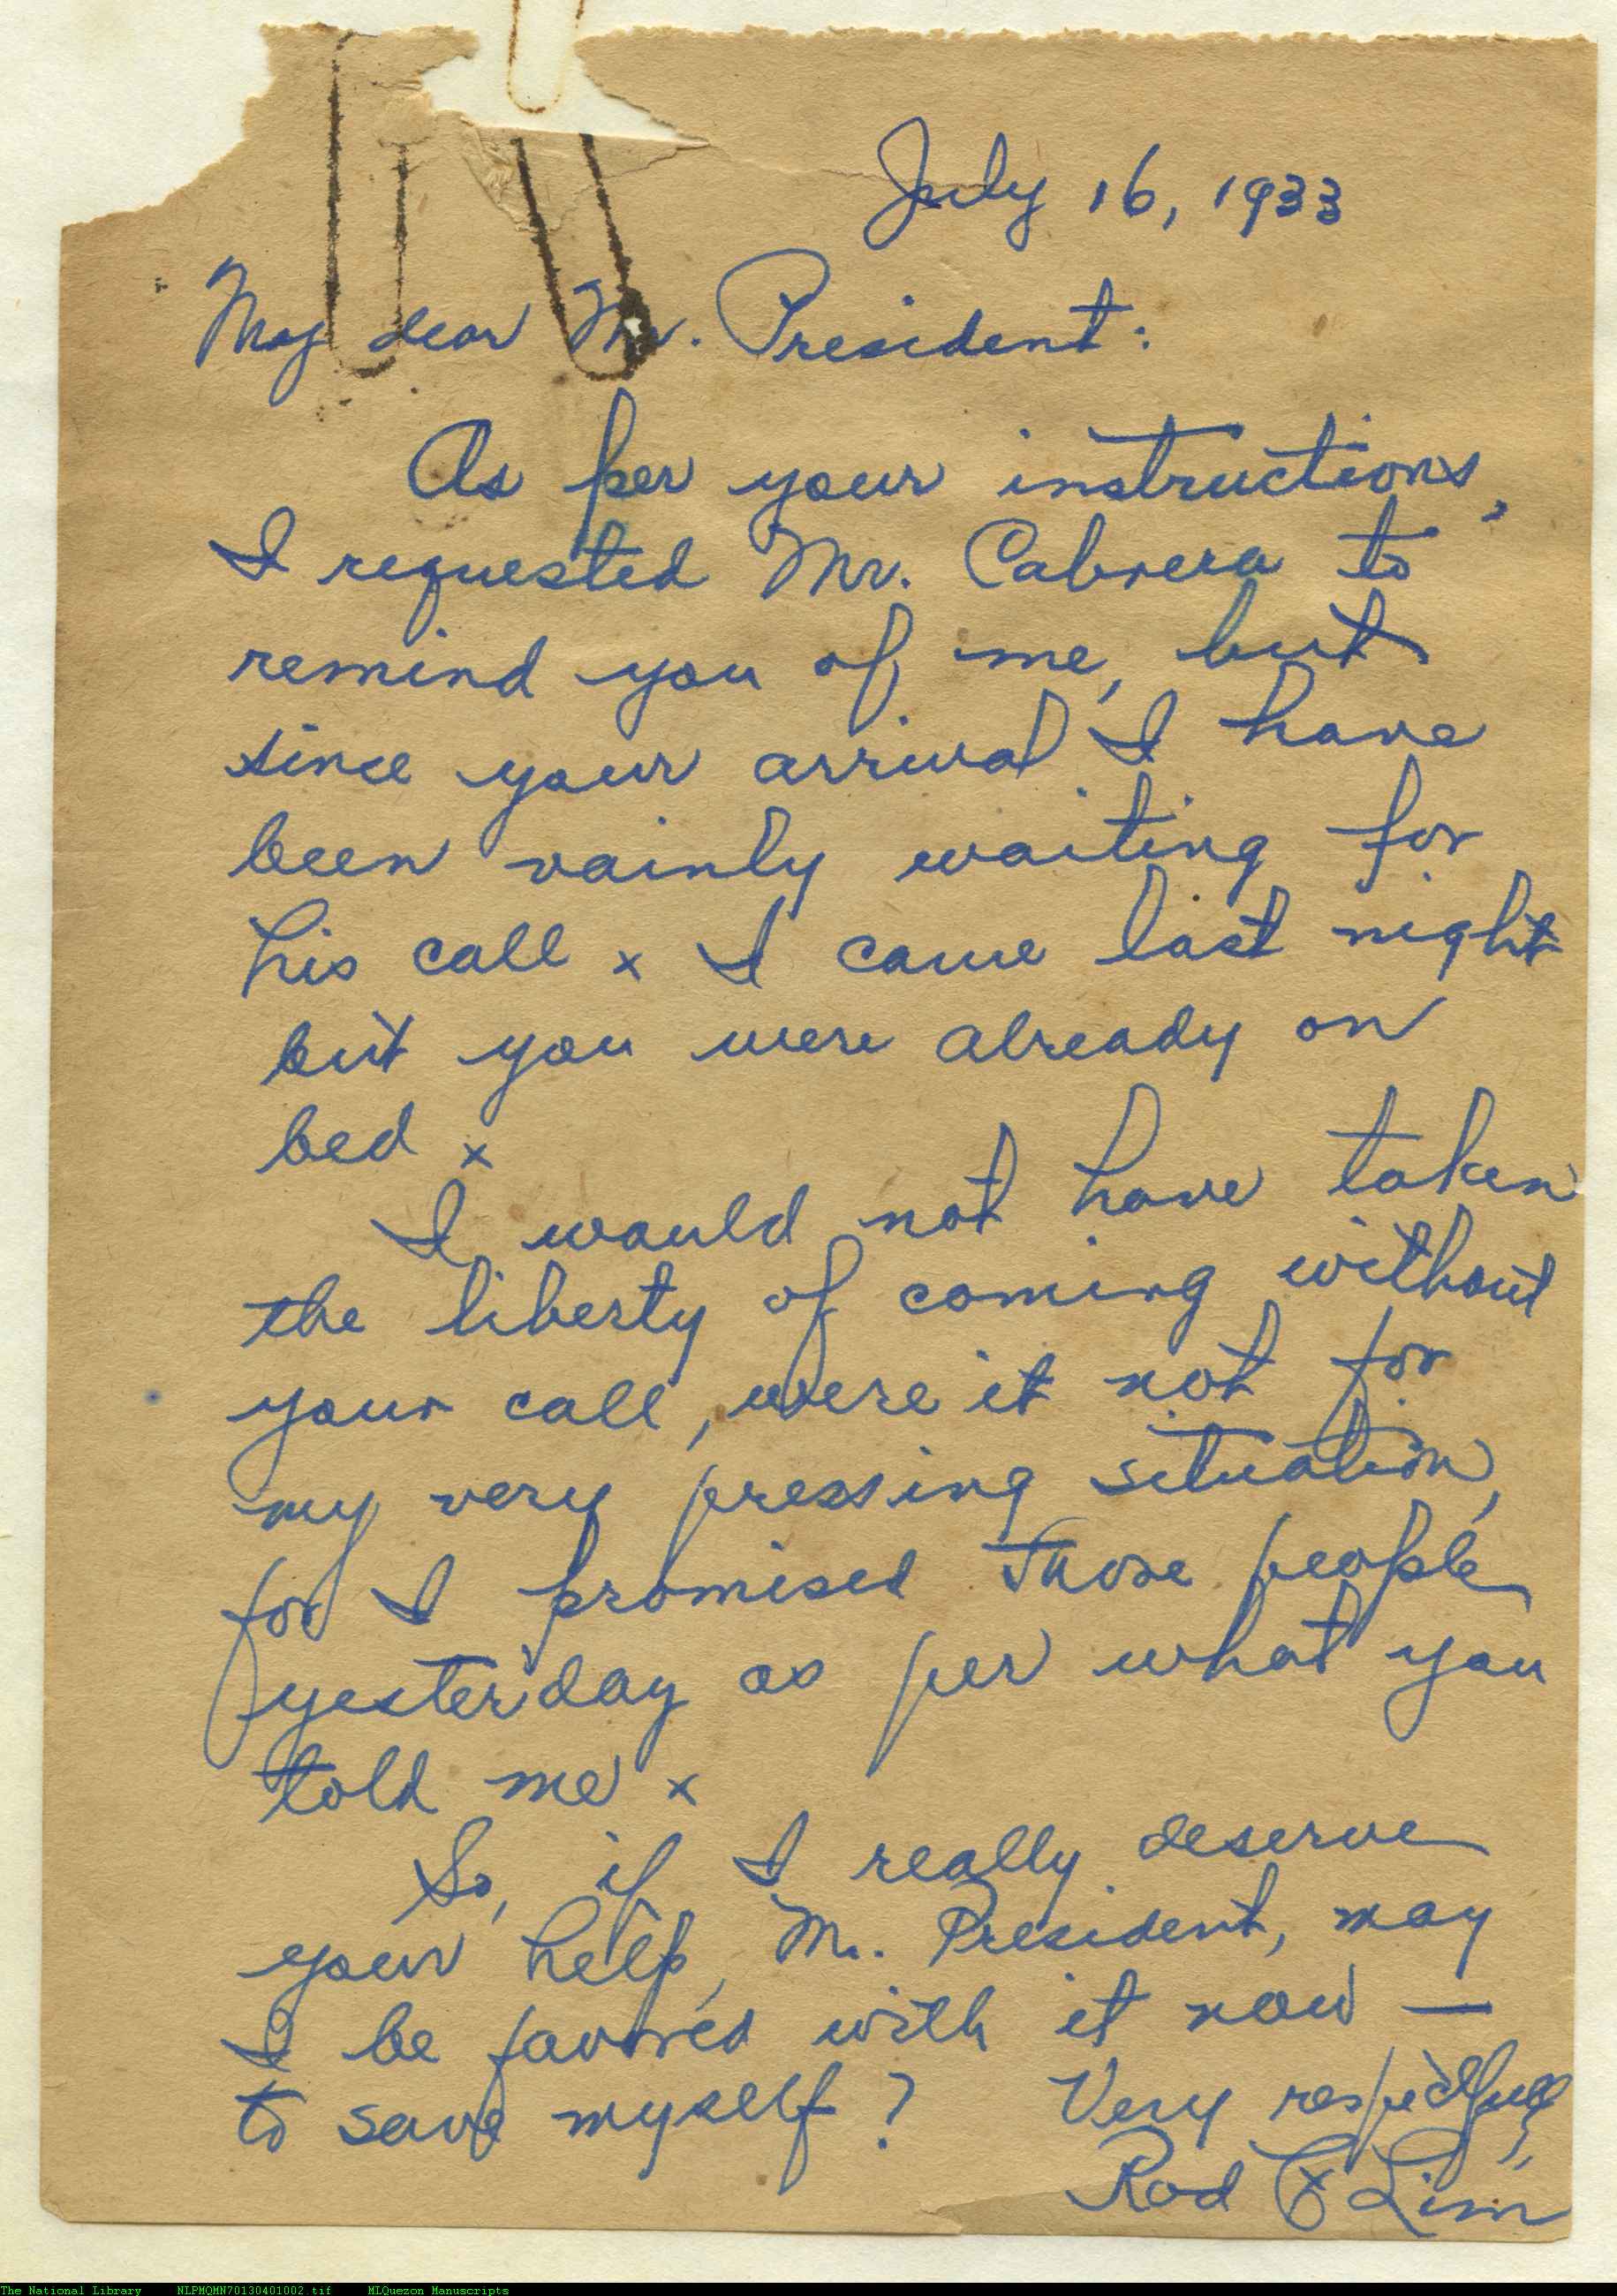 July 16, 1933
My dear Mr. President:
As per your instructions,
I requested Mr. Cabrera to
remind you of me, but
since your arrival I have
been vainly waiting for
his call x I came last night
but you were already on
bed x
I would not have taken
the liberty of coming without
your call, were it not for
my very pressing situation,
for I promised those people
yesterday as per what you
told me x
So, if I really deserve
your help, Mr. President, may
I be favored with it now —
to save myself? Very respectfully,
Rod Lim
The National Library NLPMQMN70130401002.tif MLQuezon Manuscripts